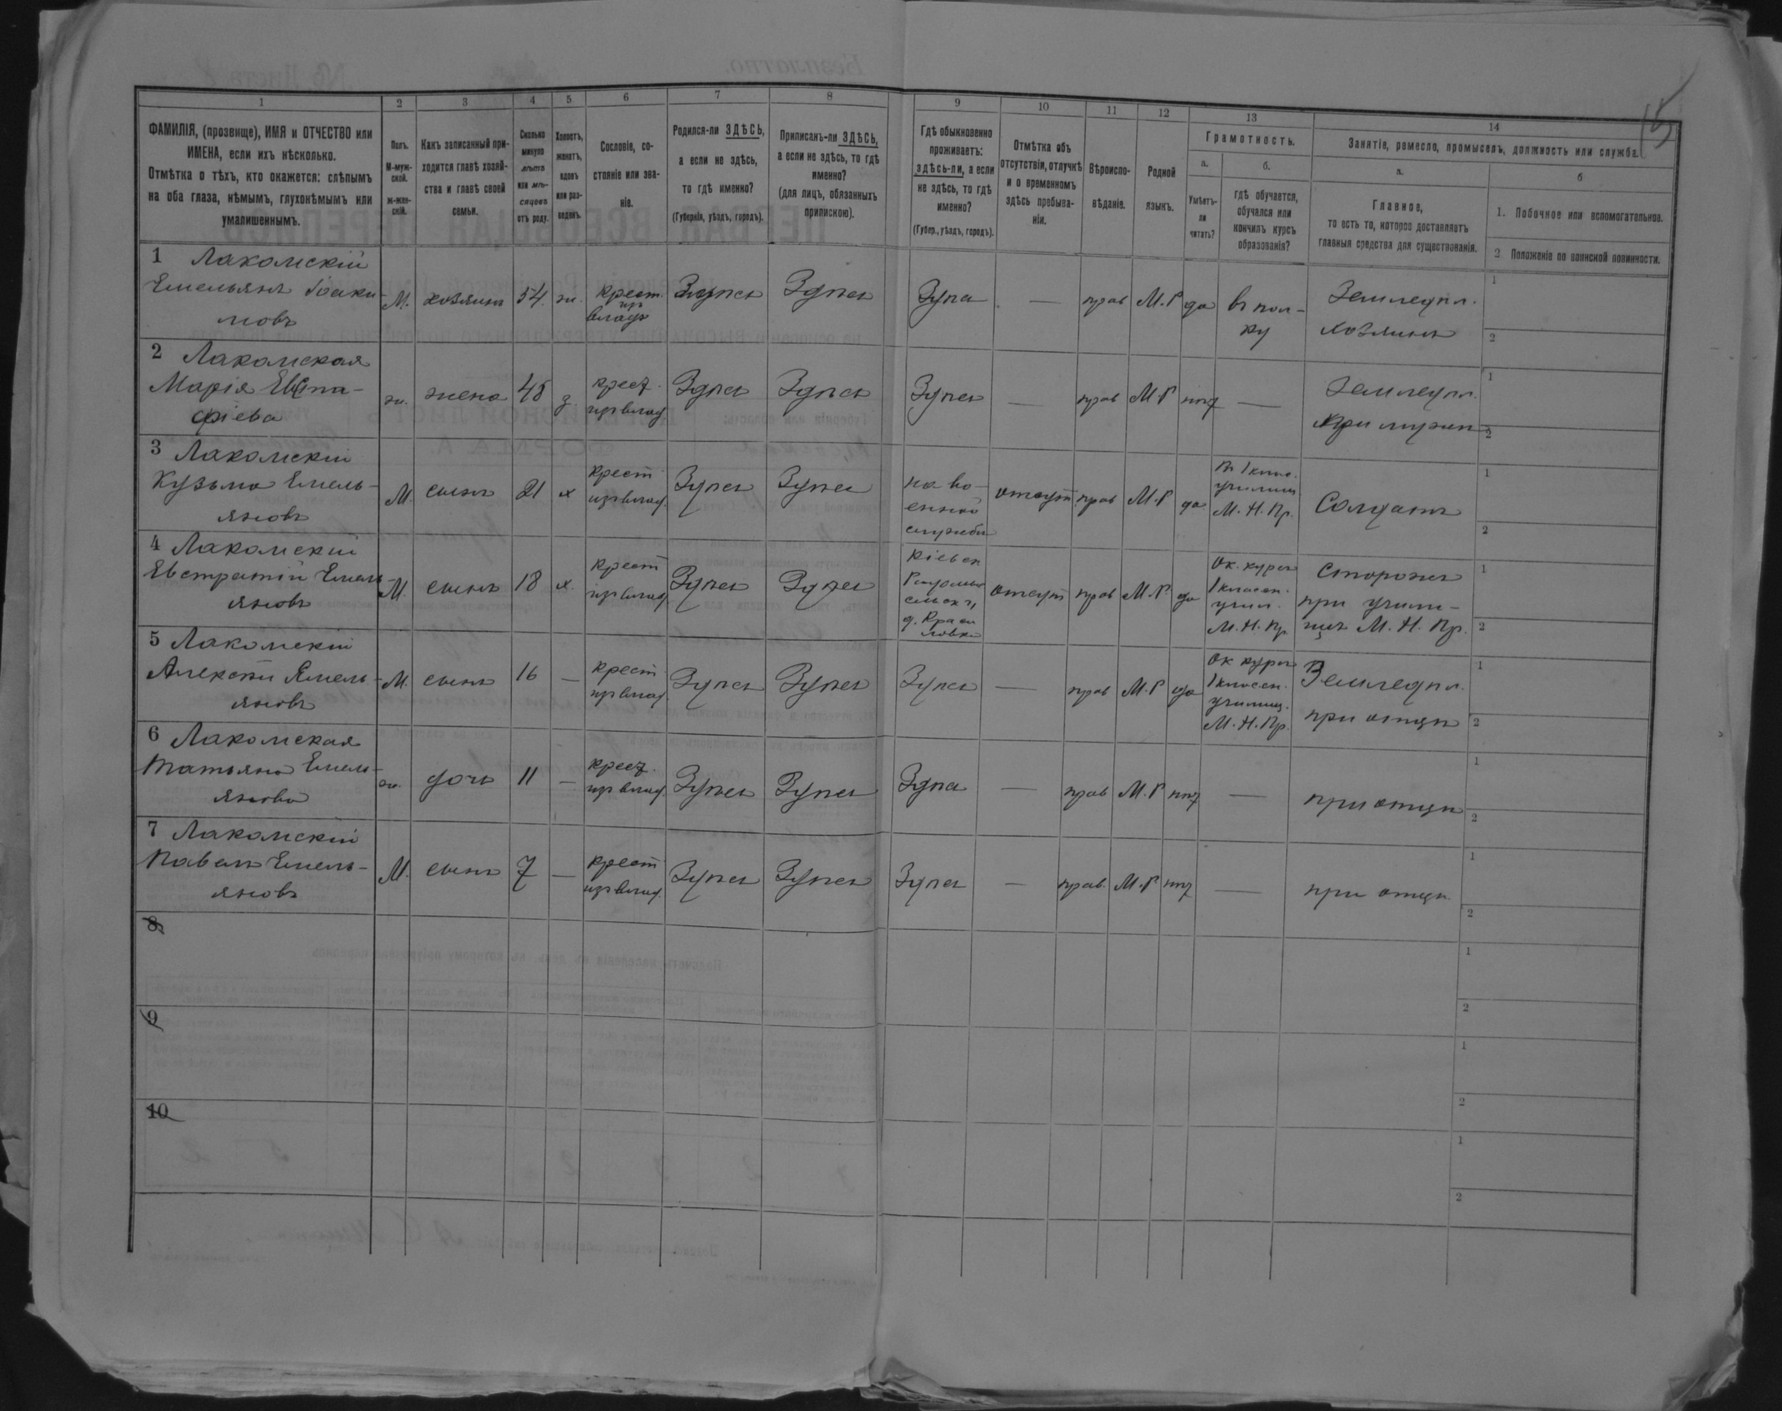 1 2 3 4 5 6 7 8 9 10 11 12 13 14
ФАМИЛІЯ, (прозвище), ИМЯ и ОТЧЕСТВО или
ИМЕНА, если ихъ нѣсколько.
Отмѣтка о тѣхъ, кто окажется: слѣпымъ
на оба глаза, нѣмымъ, глухонѣмымъ или
умалишеннымъ.
Полъ.
М-муж-
ской.
ж-жен-
скій.
Какъ записанный при-
ходится главѣ хозяй-
ства и главѣ своей
семьи.
Сколько
минуло
лѣтъ
или мѣ-
сяцевъ
отъ роду.
Холостъ,
женатъ,
вдовъ
или раз-
веденъ.
Сословіе, со-
стояніе или зва-
ніе.
Родился-ли ЗДѢСЬ,
а если не здѣсь,
то гдѣ именно?
(Губернія, уѣздъ, городъ).
Приписанъ-ли ЗДѢСЬ,
а если не здѣсь, то гдѣ
именно?
(для лицъ, обязанныхъ
припискою).
Гдѣ обыкновенно
проживаетъ:
здѣсь-ли, а если
не здѣсь, то гдѣ
именно?
(Губер., уѣздъ, городъ).
Отмѣтка объ
отсутствіи, отлучкѣ
и о временномъ
здѣсь пребыва-
ніи.
Вѣроиспо-
вѣданіе.
Родной
языкъ.
Грамотность.
а.
Умѣетъ-
ли
читать?
б.
гдѣ обучается,
обучался или
кончилъ курсъ
образованія?
Занятіе, ремесло, промыселъ, должность или служба.
а.
Главное,
то есть то, которое доставляетъ
главныя средства для существованія.
б
1. Побочное или вспомогательное.
2 Положеніе по воинской повинности.
1 Лакомскій
Емельянъ Іоаки-
мовъ
М. хозяинъ 54 ж. крест.
Здѣсь Здѣсь Здѣсь — прав М.Р да въ пол-
ку
Земледѣл.
хозяинъ
1
2
2 Лакомская
Марія Евста-
фіева
ж. жена 45 з крест.
из влад.
Здѣсь Здѣсь Здѣсь — прав М.Р нѣт —
Земледѣл.
при мужѣ
1
2
3 Лакомскій
Кузьма Емель-
яновъ
М. сынъ 21 х крест
из влад.
Здѣсь Здѣсь
на во-
енной
службѣ
отсут прав М.Р да
въ 1 клас.
училищ
М. Н. Пр.
Солдатъ
1
2
4 Лакомскій
Евстратій Емель-
яновъ
М. сынъ 18 х крест
из влад.
Здѣсь Здѣсь
Кіевск
отсут прав М.Р да
Ок. курсъ
1 классн.
учил.
М. Н. Пр
Сторожъ
при учили-
щѣ М. Н. Пр.
1
2
5 Лакомскій
Алексѣй Емель-
яновъ
М. сынъ 16 — крест
из влад.
Здѣсь Здѣсь Здѣсь — прав М.Р да
Ок курсъ
1 классн.
училищ.
М. Н. Пр.
Земледѣл.
при отцѣ
1
2
6 Лакомская
Татьяна Емель-
янова
ж. дочь 11 — крест.
из влад.
Здѣсь Здѣсь Здѣсь — прав М.Р нѣт —
при отцѣ
1
2
7 Лакомскій
Павелъ Емель-
яновъ
М. сынъ 7 — крест
из влад.
Здѣсь Здѣсь Здѣсь — прав. М.Р нѣт —
при отцѣ.
1
2
8
1
2
9
1
2
10
1
2